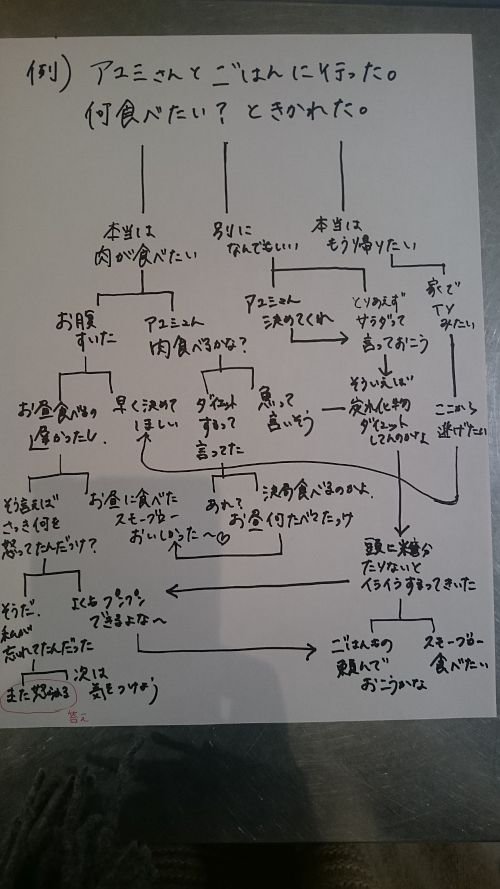 例) アユミさんと ごはんに行った。
何食べたい? ときかれた。
本当は
肉が食べたい
別に
なんでもいい
本当は
もう帰りたい
お腹
すいた
アユミさん
肉食べるかな?
アユミさん
決めてくれ
とりあえず
サラダって
言っておこう
家で
TV
みたい
お昼食べるの
遅かったし、
早く決めて
ほしい
ダイエット
するって
言ってた
魚って
言いそう
そういえば
炭水化物
ダイエット
してんのかよ
ここから
逃げたい
そう言えば
さっき何を
怒ってたんだっけ?
お昼に食べた
スモーブロー
おいしかった〜♡
あれ?
お昼何たべてたっけ
決局食べるのかよ、
頭に糖分
たりないと
イライラするってきいた
そうだ、
私が
忘れてたんだった
よくもプンプン
できるよな〜
ごはんもの
頼んで
おこうかな
スモーブロー
食べたい
また怒られる
次は
気をつけよう
答え